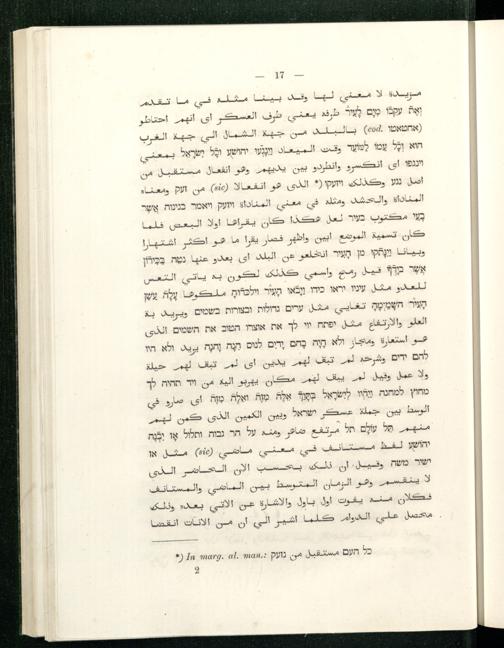 — 17 —
مزيدة لا معنى لها وقد بينا مثله فى ما تقدم
וְאֶת עקבו מִיָּם לָעִיר طرفه يعنى طرف العسكر اى انهم احتاطو
(احتطاطو cod.) بالبلد من جهة الشمال الى جهة الغرب
הוא וְכָל עַמּוֹ לַמּוֹעֵד وقت الميعاد וַיִּנָּגְעוּ יהושֻׁע וְכָל יִשְׂרָאֵל بمعنى
וינגפו اى انكسرو وانطردو بين يديهم وهو انفعال مستقبل من
اصل נגע وكذلك ויזעקו (* الذى هو انفعالا (sic) من זעק ومعناه
المناداة والحشد ومثله فى معنى المناداة ויזעק ויאמר בנינוה אֲשֶׁר
בָּעַי مكتوب בעיר لعل هكذا كان يقراها اولا البعض فلما
كان تسمية الموضع ابين واظهر فصار يقرا ما هو اكثر اشتهارا
وبيانا וַיִּנָּתְקוּ מן הָעִיר انخلعو عن البلد اى بعدو عنها נטה בַּכִּידוֹן
אֲשֶׁר בְּיָדְךָ قيل رمح واسمى كذلك لكون به ياتى التعس
للعدو مثل עיניו יראו כידו וַיָּבֹאוּ הָעִיר וילכדוּהָ ملكوها עָלָה עֲשַׁן
הָעִיר הַשָּׁמַיְמָה تغايى مثل ערים גדולות ובצורות בשמים ويريد بة
العلو والارتفاع مثل יפתח ייי לך את אוצרו הטוב את השמים الذى
هو استعارة ومجاز ולא הָיָה בָהֶם יָדַיִם לָנוּס הֵנָּה וָהֵנָּה يريد ולא היו
להם ידים وشرحه لم تبق لهم يدين اى لم تبق لهم حيلة
ولا عمل وقيل لم يبق لهم مكان يهربو اليه من ויד תהיה לך
מחוץ למחנה וַיִּהְיוּ לְיִשְׂרָאֵל בַּתָּוֶךְ אֵלֶּה מִזֶּה וְאֵלֶּה מִזֶּה اى صارو فى
الوسط بين جملة عسكر ישראל وبين الكمين الذى كمن لهم
منهم תֵּל עוֹלָם תל مرتفع ظاهر ومنه על הר גבוה ותלול אָז יִבְנֶה
יהושֻׁע لفظ مستانف فى معنى ماضى (sic) مثل אז
ישיר משה وقيل ان ذلك بحسب الان الحاضر الذى
لا ينقسم وهو الزمان المتوسط بين الماضى والمستانف
فكلان منه يفوت اول باول والاشارة عن الاتى بعده وذلك
متحصل على الدوام كلما اشير الى ان من الانات انقضا
*) In marg. al. man.: כל העם مستقبل من נזעק
2